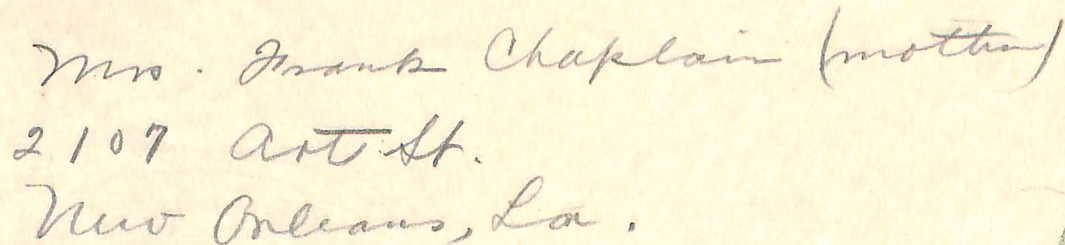 Mrs. Frank Chaplain (mother)
2107 Art St.
New Orleans, La.